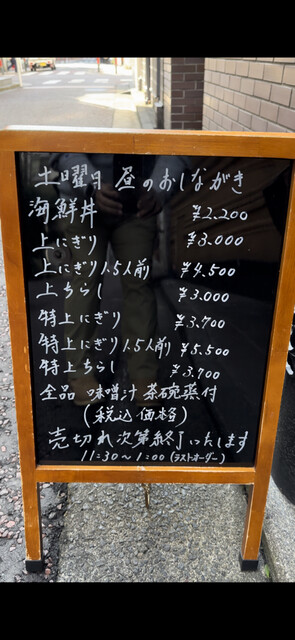 土曜日 昼のおしながき
海鮮丼 ¥2,200
上にぎり ¥3,000
上にぎり1.5人前 ¥4,500
上ちらし ¥3,000
特上にぎり ¥3,700
特上にぎり1.5人前 ¥5,500
特上ちらし ¥3,700
全品 味噌汁 茶碗蒸付
(税込価格)
売切れ次第終了いたします
11:30~1:00(ラストオーダー)